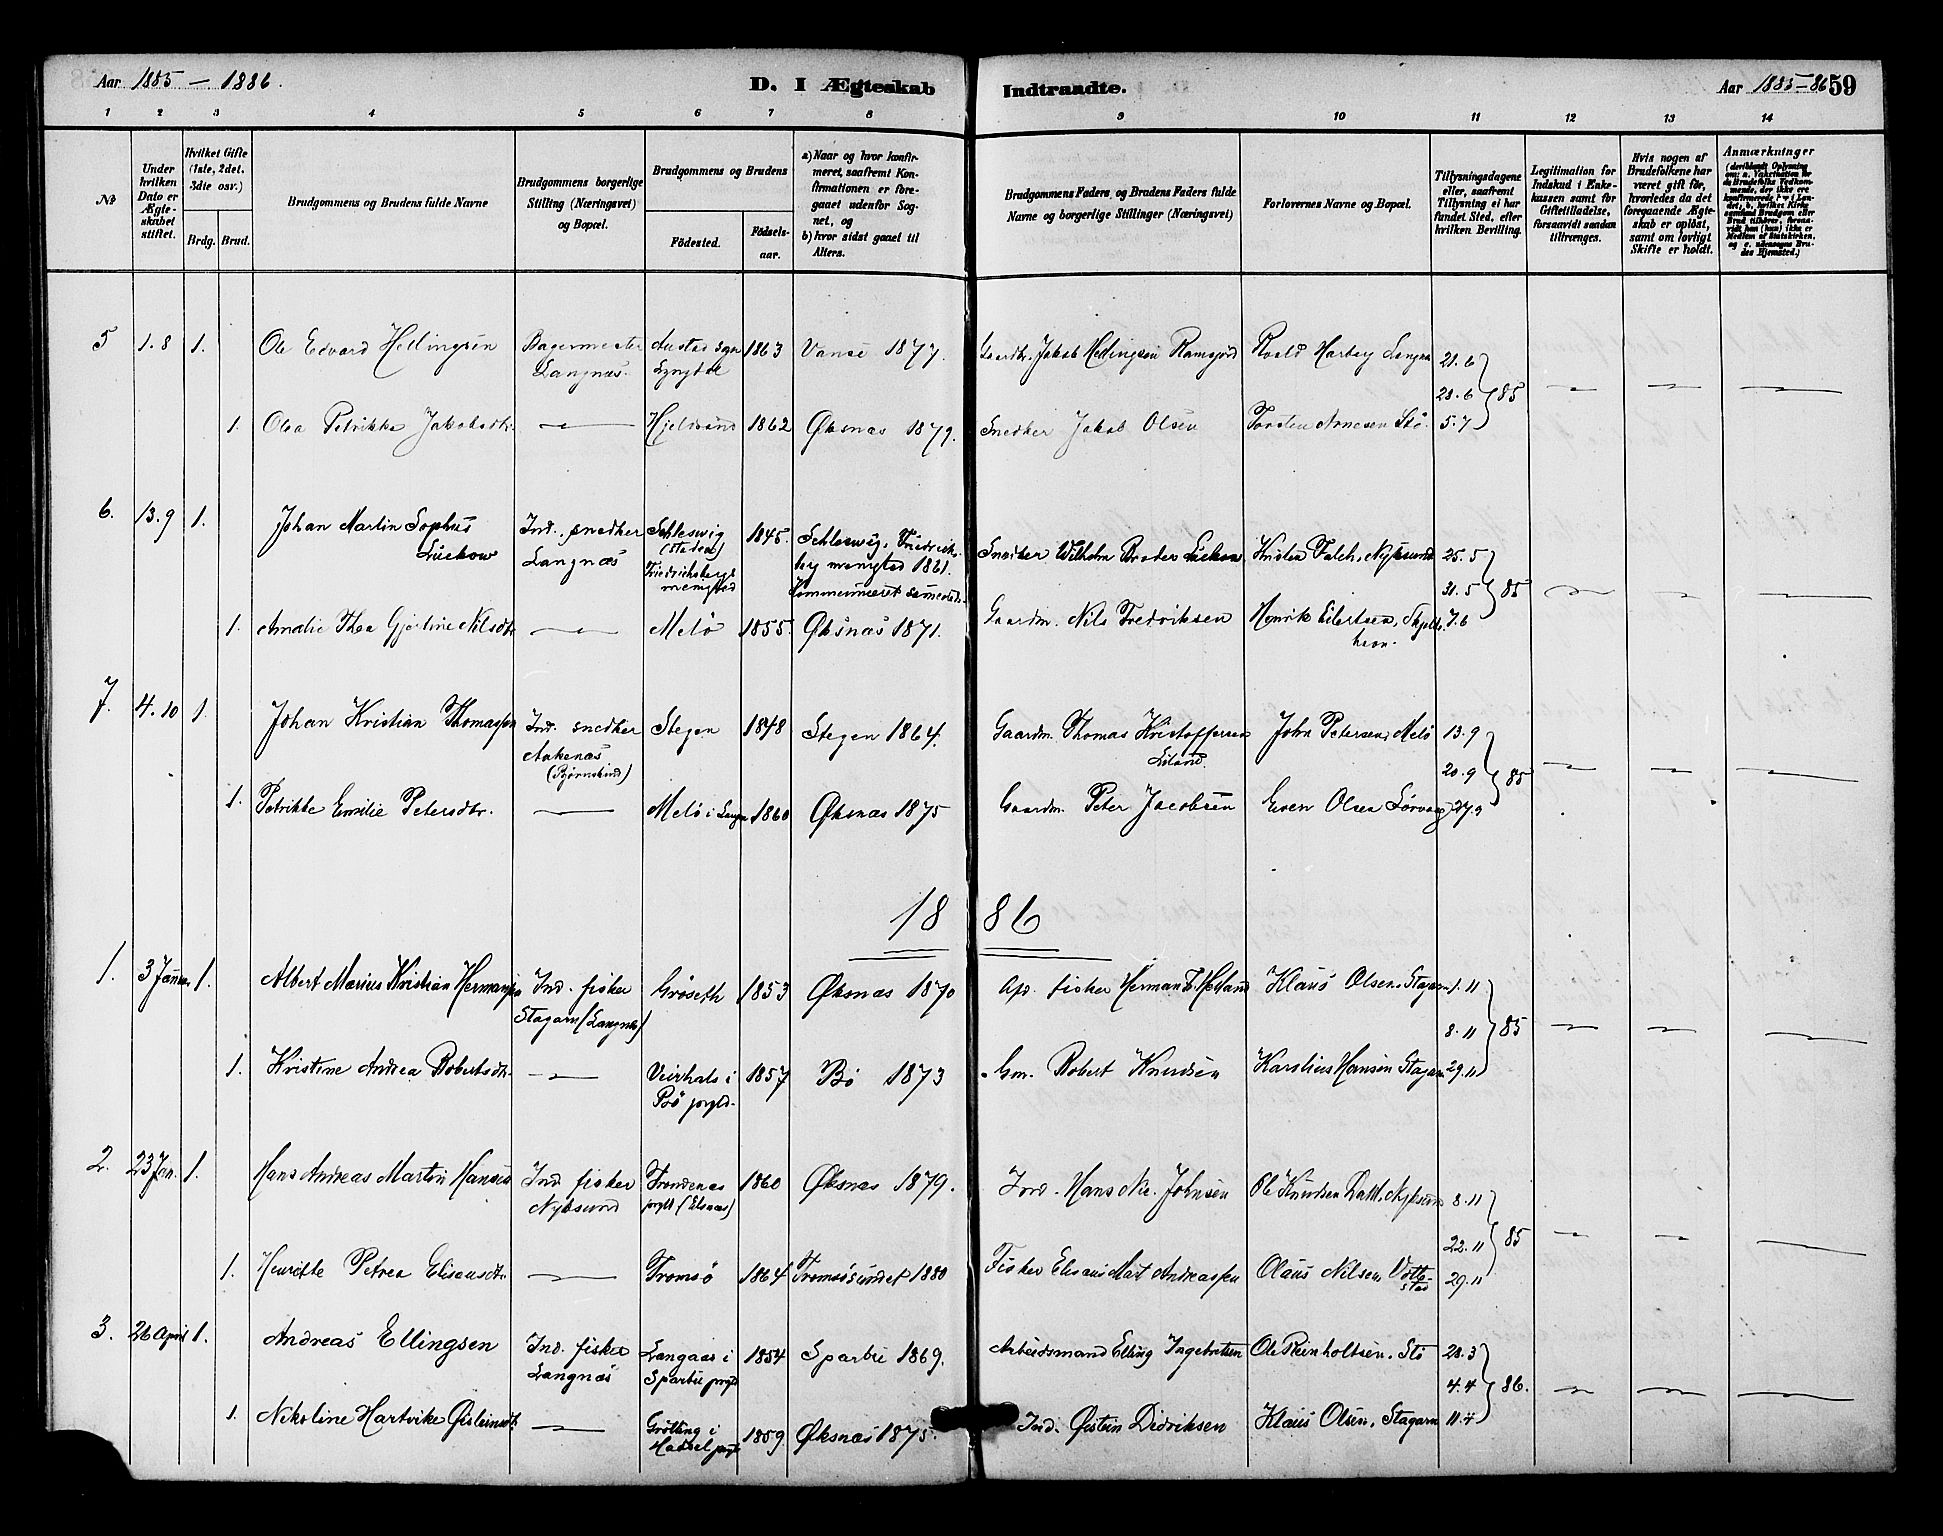 Aar 1885 – 1886.
D. I Ægteskab Indtraadte.
Aar 1885–86 59
1 2 3 4 5 6 7 8 9 10 11 12 13 14
No
Under hvilken Dato er Ægteskabet stiftet.
Hvilket Gifte (1ste, 2det, 3die osv.)
Brdg. Brud.
Brudgommens og Brudens fulde Navne
Brudgommens borgerlige Stilling (Næringsvei) og Bopæl.
Brudgommens og Brudens
Födested. Födselsaar.
a) Naar og hvor konfirmeret, saafremt Konfirmationen er foregaaet udenfor Sognet, og
b) hvor sidst gaaet til Alters.
Brudgommens Faders og Brudens Faders fulde Navne og borgerlige Stillinger (Næringsvei)
Forlovernes Navne og Bopæl.
Tillysningsdagene eller, saafremt Tillysning ei har fundet Sted, efter hvilken Bevilling.
Legitimation for Indskud i Enkekassen samt for Giftetilladelse, forsaavidt saadan tiltrænges.
Hvis nogen af Brudefolkene har været gift för, hvorledes da det foregaaende Ægteskab er oplöst, samt om lovligt Skifte er holdt.
Anmærkninger
5 1.8 1. Ole Edvard Hellingsen Bagermester Langnæs. Austad sgn Lyngdal 1863 Vanse 1877. Gaardbr. Jakob Hellingsen Ramsjord Roald Harboy Langnæs 21.6
28.6 85
1. Olea Petrikke Jakobsdtr. — Hjeldsund 1862 Øksnæs 1879. Snedker Jakob Olsen Torsten Arnesen Stö. 5.7
6. 13.9 1. Johan Martin Sophus Luckow Ind. snedker Langnæs Schleswig (staden) Friedrichsbergs menigted 1845. Schleswig, Friedrichsberg menigted 1861. Snedker Wilhelm Broder Luckow Kristen Falch, Nyksund 25.5
31.5 85
1. Amalie Thea Gjertine Nilsdtr — Melö 1855. Øksnæs 1871. Gaardm. Nils Fredriksen Henrik Eilertsen, 7.6
7. 4.10 1. Johan Kristian Thomassen Ind. snedker Aakenæs (Björnskind) Stegen 1848 Stegen 1864. Gaardm. Thomas Kristoffersen John Petersen, Melö 13.9
20.9 85
1. Petrikke Emilie Petersdtr. — Melö i Langn 1860 Øksnæs 1875 Gaardm. Peter Jacobsen Even Olsen Sörvaag 27.9
18 86
1. 3 Januar 1. Albert Marius Kristian Hermansen Ind. fisker Stagarn (Langnæs) Gröseth 1853 Øksnæs 1870 Afd. fisker Herman Klaus Olsen, Stagarn 1.11
8.11 85
1. Kristine Andrea Robertsdtr. — Veirhals i Bö prgld. 1857 Bö 1873 Gm. Robert Knudsen Karolius Hansen Stagarn 29.11
2. 23 Jan. 1. Hans Andreas Martin Hansen Ind fisker Nyksund Trondenæs prgld (Elsnæs) 1860 Øksnæs 1879. Jord. Hans Nic. Johnsen Ole Knudsen Dahl, Nyksund 8.11
22.11 85
1. Henrikke Petrea Elisensdtr. — Tromsö 1864 Tromsösundet 1880 Fisker Elisæus Mat. Andreassen Olaus Nilsen 29.11
3. 26 April 1. Andreas Ellingsen Ind. fisker Langnæs Langaas i Sparbu prgld 1854 Sparbu 1869. Arbeidsmand Elling Ingebretsen Ole Reinholtsen, Stö 28.3
4.4 86.
1. Nikoline Hartvike Öisteinsdtr. — Grötting i Hadsel prgld 1859 Øksnæs 1875. Ind. Östein Didriksen Klaus Olsen, Stagarn 11.4